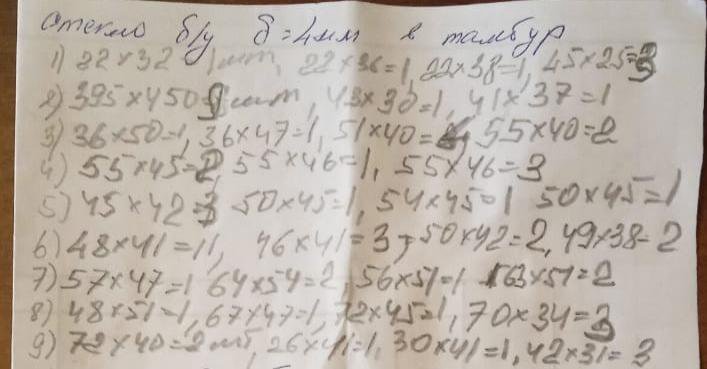 стекло б/у δ=4мм в тамбур
1) 22×32 1шт, 22×36=1, 22×38=1, 45×25=3
2) 395×450 шт, 43×30=1, 41×37=1
3) 36×50=1, 36×47=1, 51×40= 55×40=2
4) 55×45=2, 55×46=1, 55×46=3
5) 45×42=3 50×45=1, 54×45=1 50×45=1
6) 48×41=11, 46×41=3, 50×42=2, 49×38=2
7) 57×47=1 64×54=2, 56×51=1 63×51=2
8) 48×51=1, 67×47=1, 72×45=1, 70×34=3
9) 72×40=2шт, 26×41=1, 30×41=1, 42×31=3